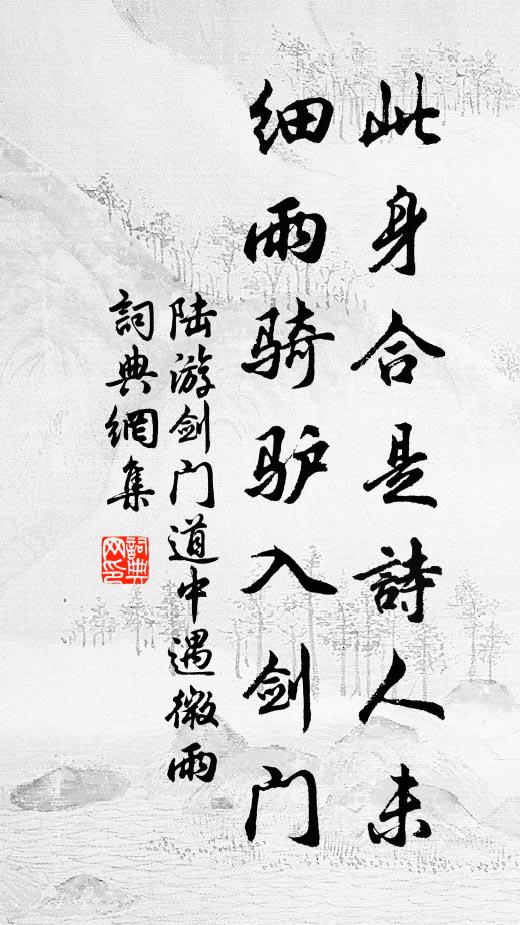 此身合是詩人未
细雨骑驴入剑门
陆游剑门道中遇微雨
詞典網集
詞典网印